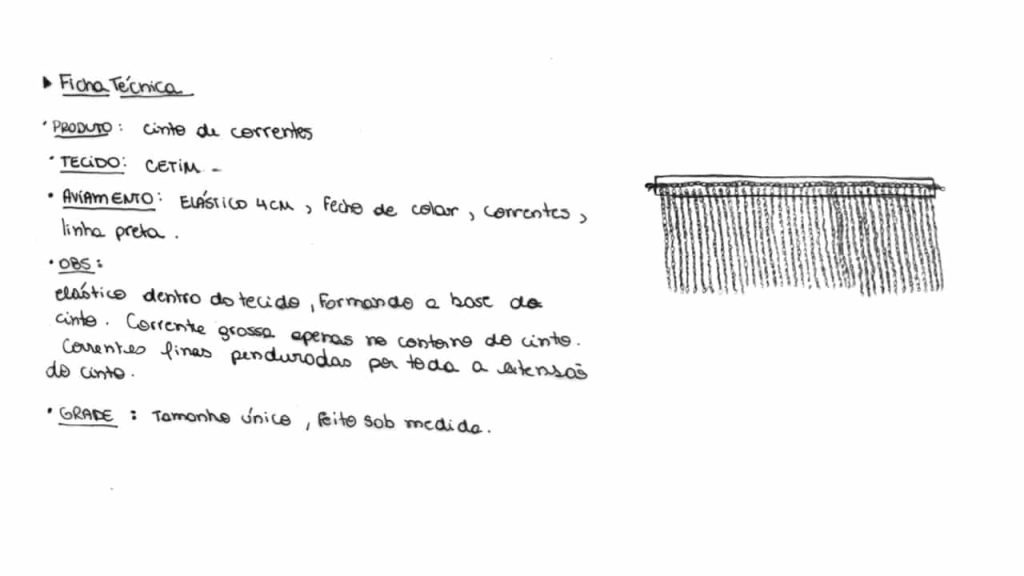 ▸ Ficha Técnica
• PRODUTO: cinto de correntes
• TECIDO: CETIM -
• AVIAMENTO: ELÁSTICO 4CM, fecho de colar, correntes,
linha preta.
• OBS:
elástico dentro do tecido, formando a base do
cinto. Corrente grossa apenas no contorno do cinto.
Correntes finas penduradas por toda a extensão
do cinto.
• GRADE: Tamanho único, feito sob medida.